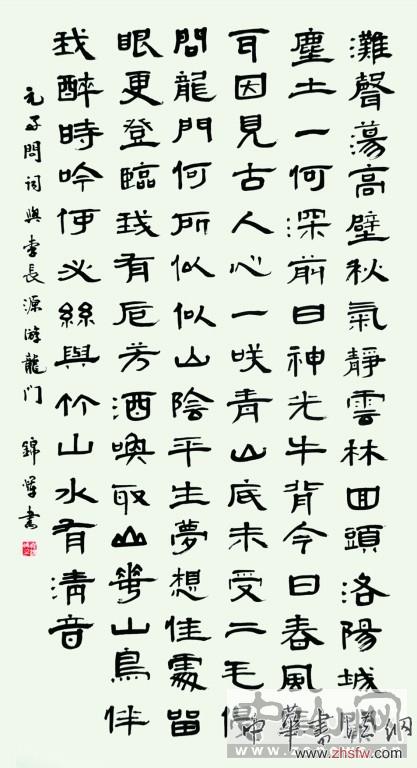 灘聲蕩高壁秋氣靜雲林囬頭洛陽城
塵土一何深前日神光牛背今日春風
耳因見古人心一咲青山底未受二毛侵
問龍門何所似似山陰平生夢想佳處留
眼更登臨我有卮芳酒喚取山花山鳥伴
我醉時吟何必絲與竹山水有清音
元好問詞與李長源游龍门 錦書
www.zhsfw.com